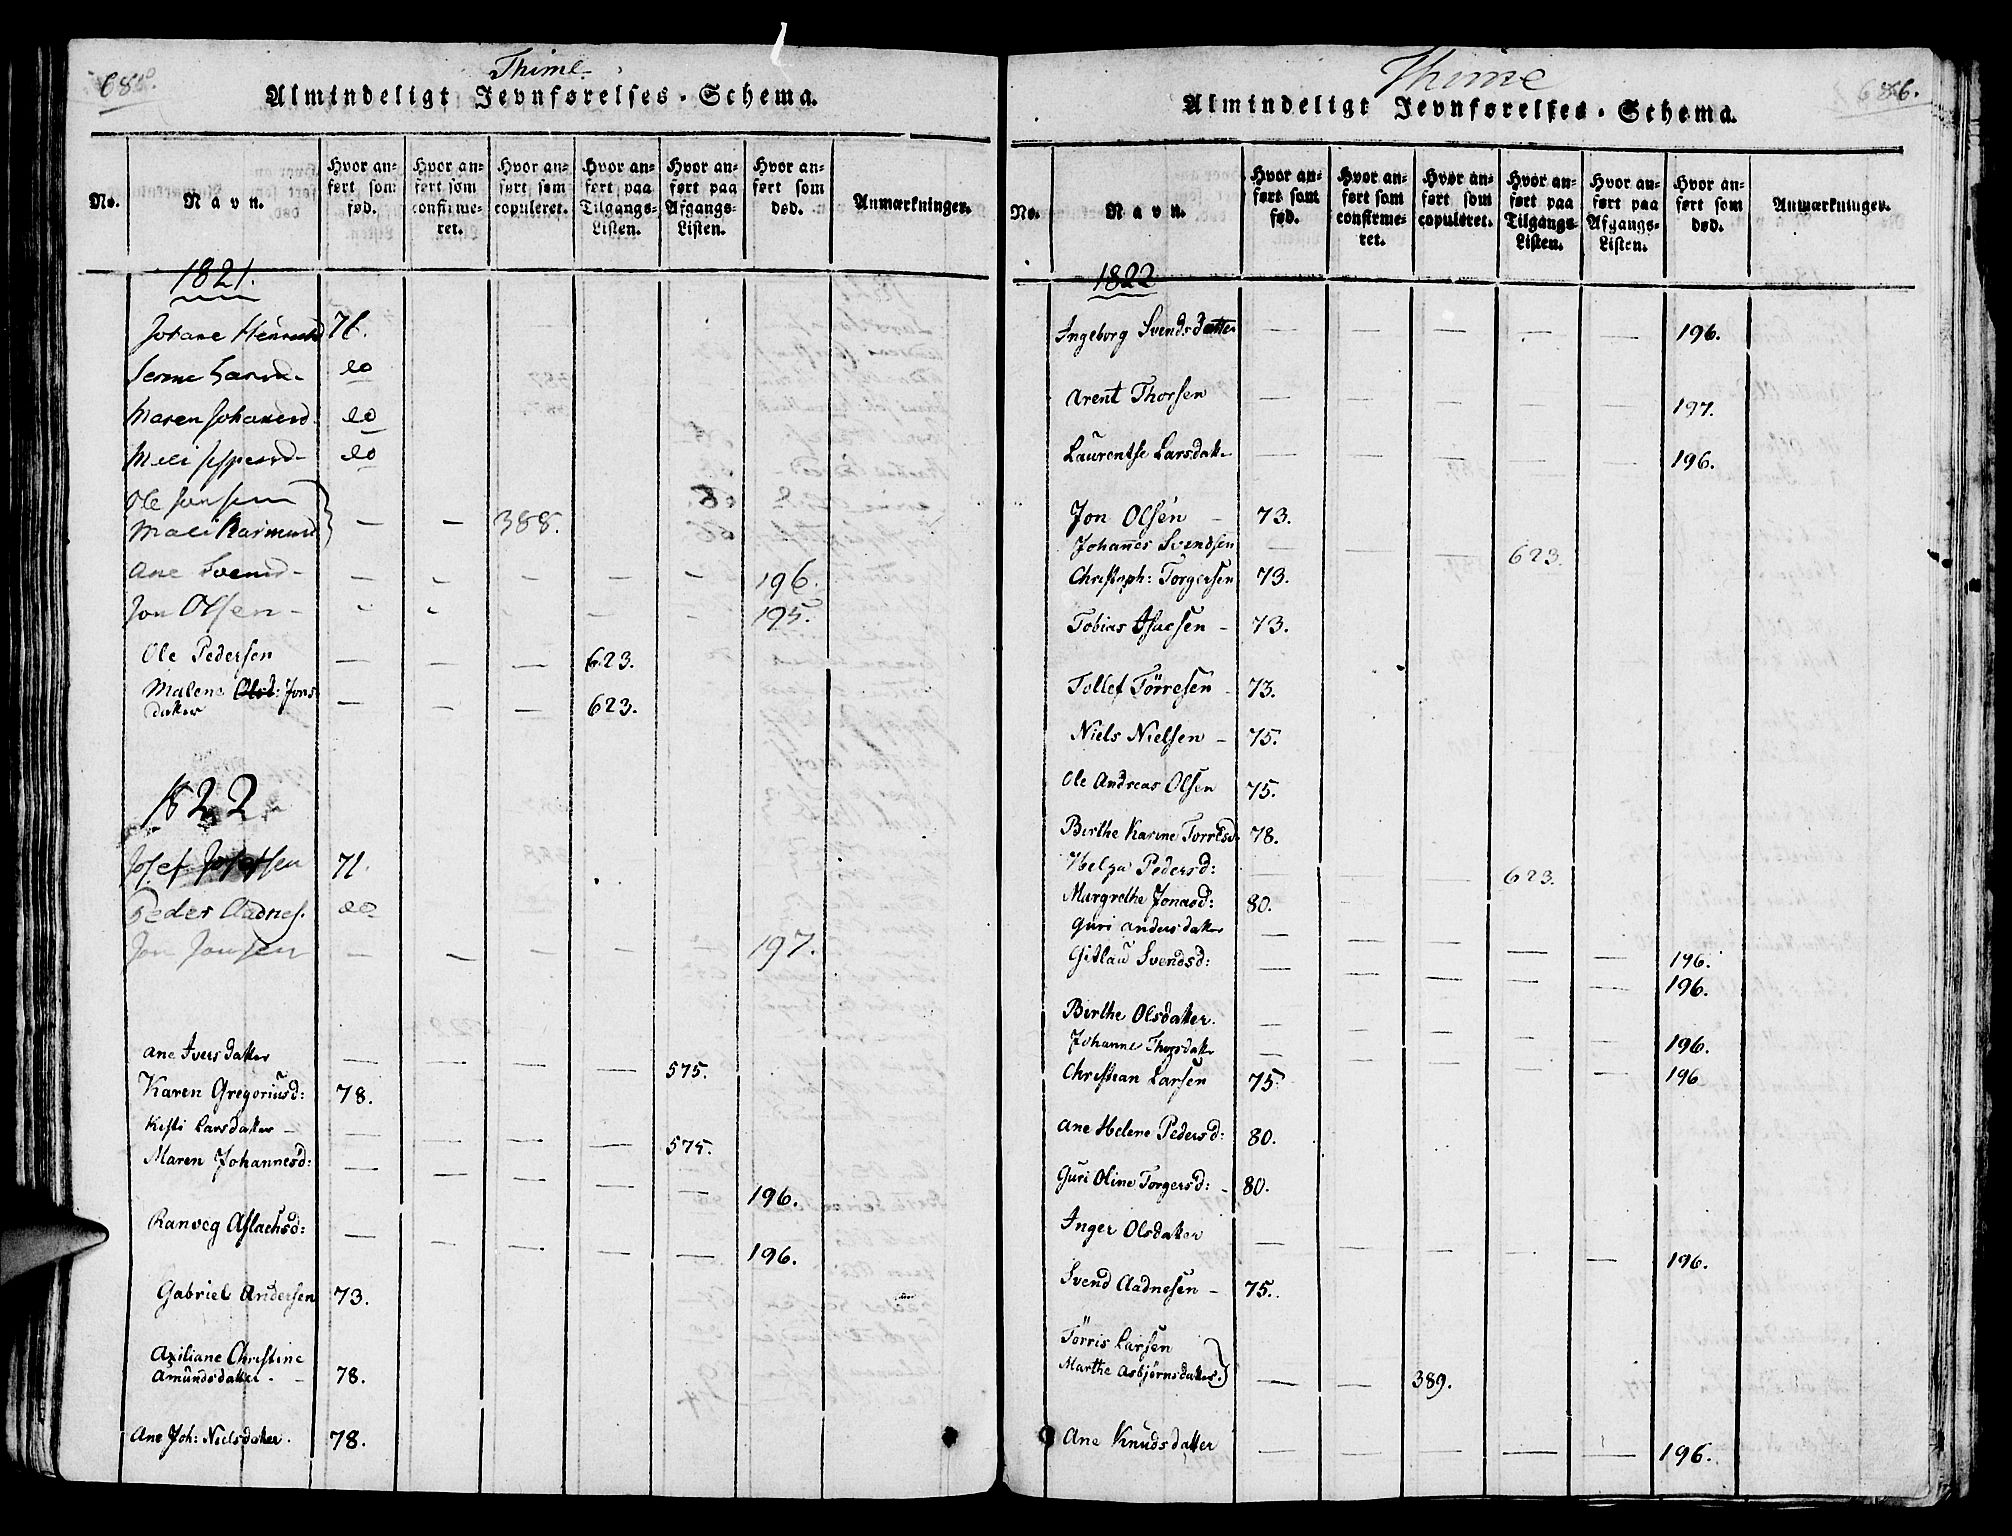 Thime
Almindeligt Jevnførelses-Schema.
No.
Navn.
Hvor anført som fød.
Hvor anført som confirmeret.
Hvor anført som copuleret.
Hvor anført paa Tilgangs-Listen.
Hvor anført paa Afgangs-Listen.
Hvor anført som død.
Anmærkninger.
1821.
71.
do
Maren Johanesd. do
do
Ole Jansen
Mali Rasmusd } — — 388.
Ane Svensd- — — — — — 196.
Jon Olsen- — — — — — 195.
Ole Pedersen — — — 623.
Malene Olsd: Jons
datter — — — 623.
1822
Josef Josefsen 71.
Peder Aadnes. do
Jon Jonsen — — — — — 197.
Ane Ivers datter — — — — 575.
Karen Gregoriusd: 78.
Kisti Larsdatter — — — — — 575.
Maren Johannesd: — — — — — 196.
Ranveg Aslachsd: — — — — — 196.
Gabriel Andersen 73.
Axiliane Christine
Amundsdatter. - 78.
Ane Joh: Nielsdatter. 78.
Thime
686.
Almindeligt Jevnførelses-Schema.
No.
Navn.
Hvor anført som fød.
Hvor anført som confirmeret.
Hvor anført som copuleret.
Hvor anført paa Tilgangs-Listen.
Hvor anført paa Afgangs-Listen.
Hvor anført som død.
Anmærkninger.
1822
Ingeborg Svendsdatter — — — — — 196.
Arent Thorsen — — — — — 197.
Laurentse Larsdatter — — — — — 196.
Jon Olsen - 73.
Johannes Svendsen — — — 623.
Christoph: Torgersen 73.
Tobias Isacsen - 73.
Tollef Törresen - 73.
Niels Nielsen - 75.
Ole Andreas Olsen 75.
Birthe Karine Torresd. 78.
Helga Pedersd: — — — 623.
Margrethe Jonasd: 80.
Guri Andersdatter — — — — — 196.
Gitlau Svendsd: — — — — — 196.
Birthe Olsdatter. — — — — — 196.
Johanne Thorsdatter — — — — — 196
Christian Larsen 75.
Ane Helene Pedersd: 80.
Guri Oline Torgersd: - 80.
Inger Olsdatter — — — — — 196.
Svend Aadnesen - 75.
Törris Larsen
Marthe Asbjörnsdatter. } — — 389.
Ane Knudsdatter — — — — — 196.